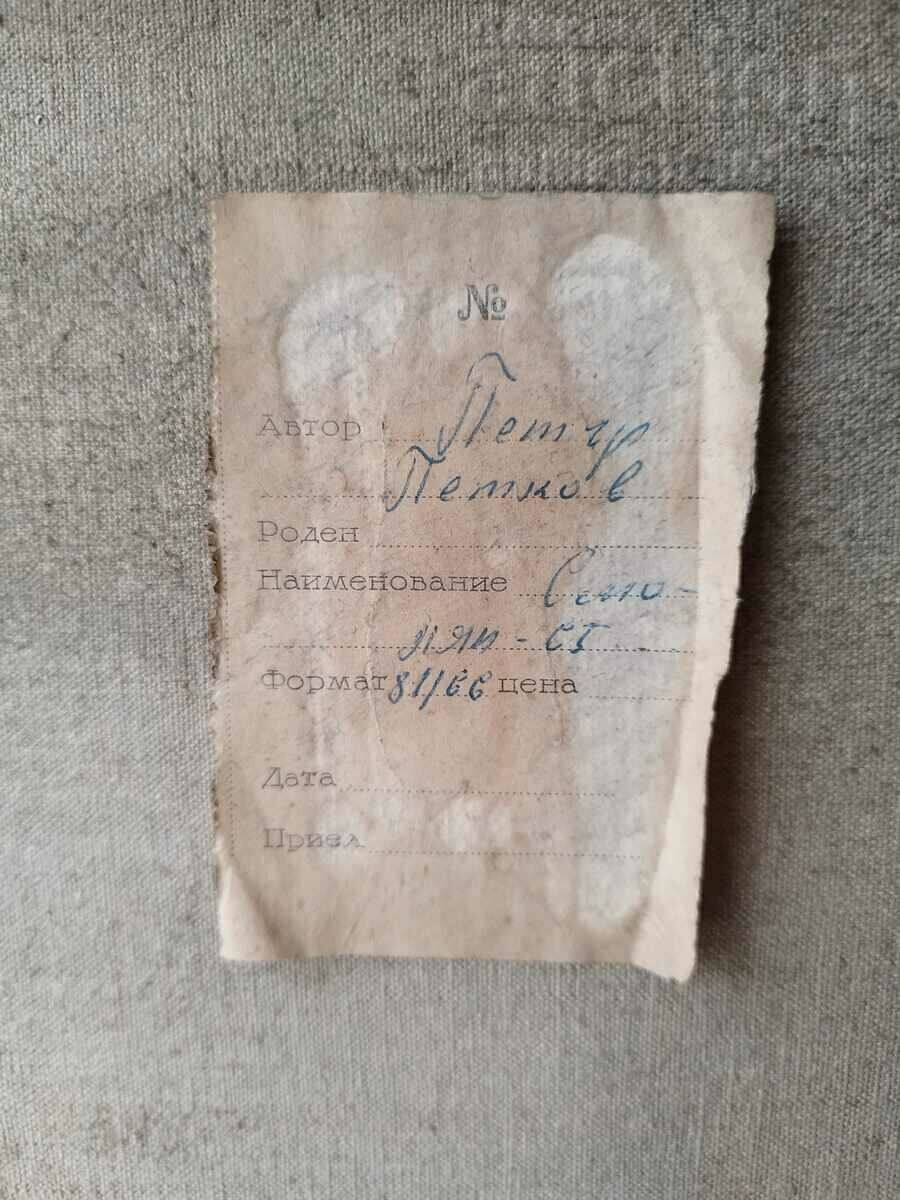 №
Автор Петър
Петков
Роден
Наименование
Формат 81/66 цена
Дата
Приел